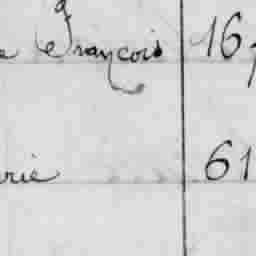 François 167
rie 61